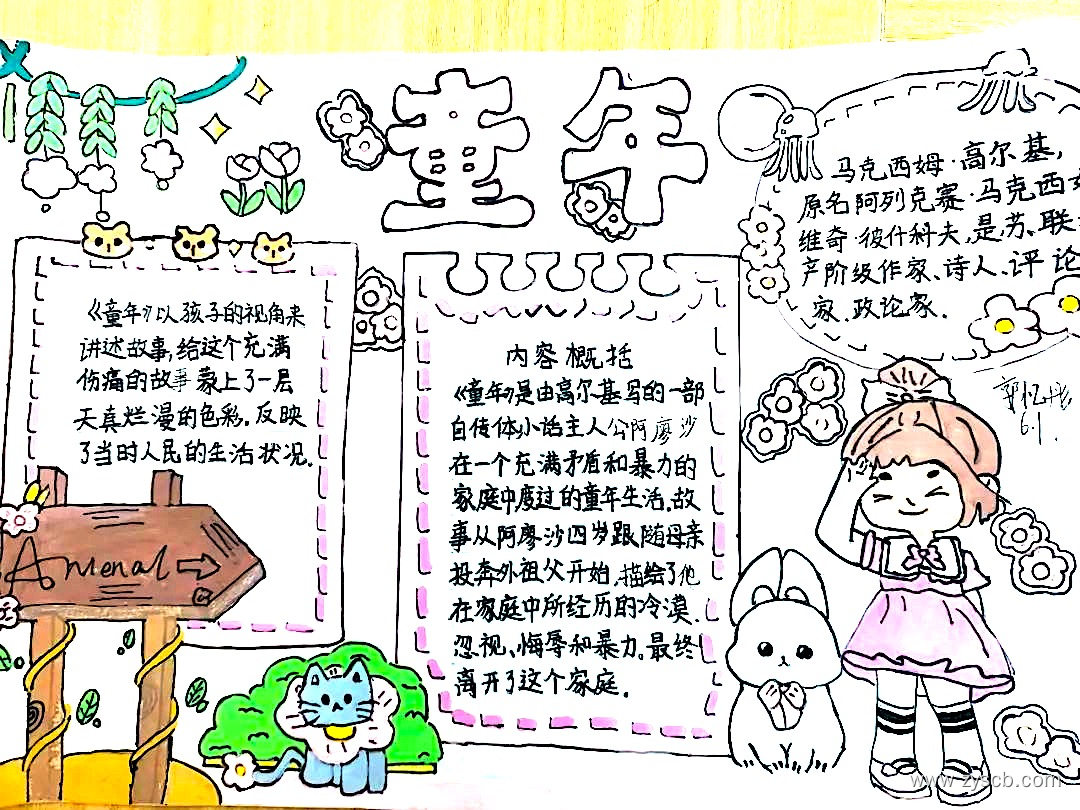 童年
马克西姆·高尔基,
原名阿列克赛·马克西
维奇·彼什科夫,是苏联
产阶级作家、诗人、评论
家、政论家.
《童年》以孩子的视角来
讲述故事,给这个充满
伤痛的故事蒙上了一层
天真烂漫的色彩.反映
了当时人民的生活状况.
内容概括
《童年》是由高尔基写的一部
自传体小话主人公阿廖沙
在一个充满矛盾和暴力的
家庭中度过的童年生活.故
事从阿廖沙四岁跟随母亲
投奔外祖父开始.描绘了他
在家庭中所经历的冷漠.
忽视、悔辱和暴力。最终
离开了这个家庭.
6.1.
www.zyscb.com